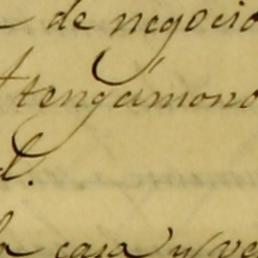 de negocio
tengámono
d.
la casa y ve